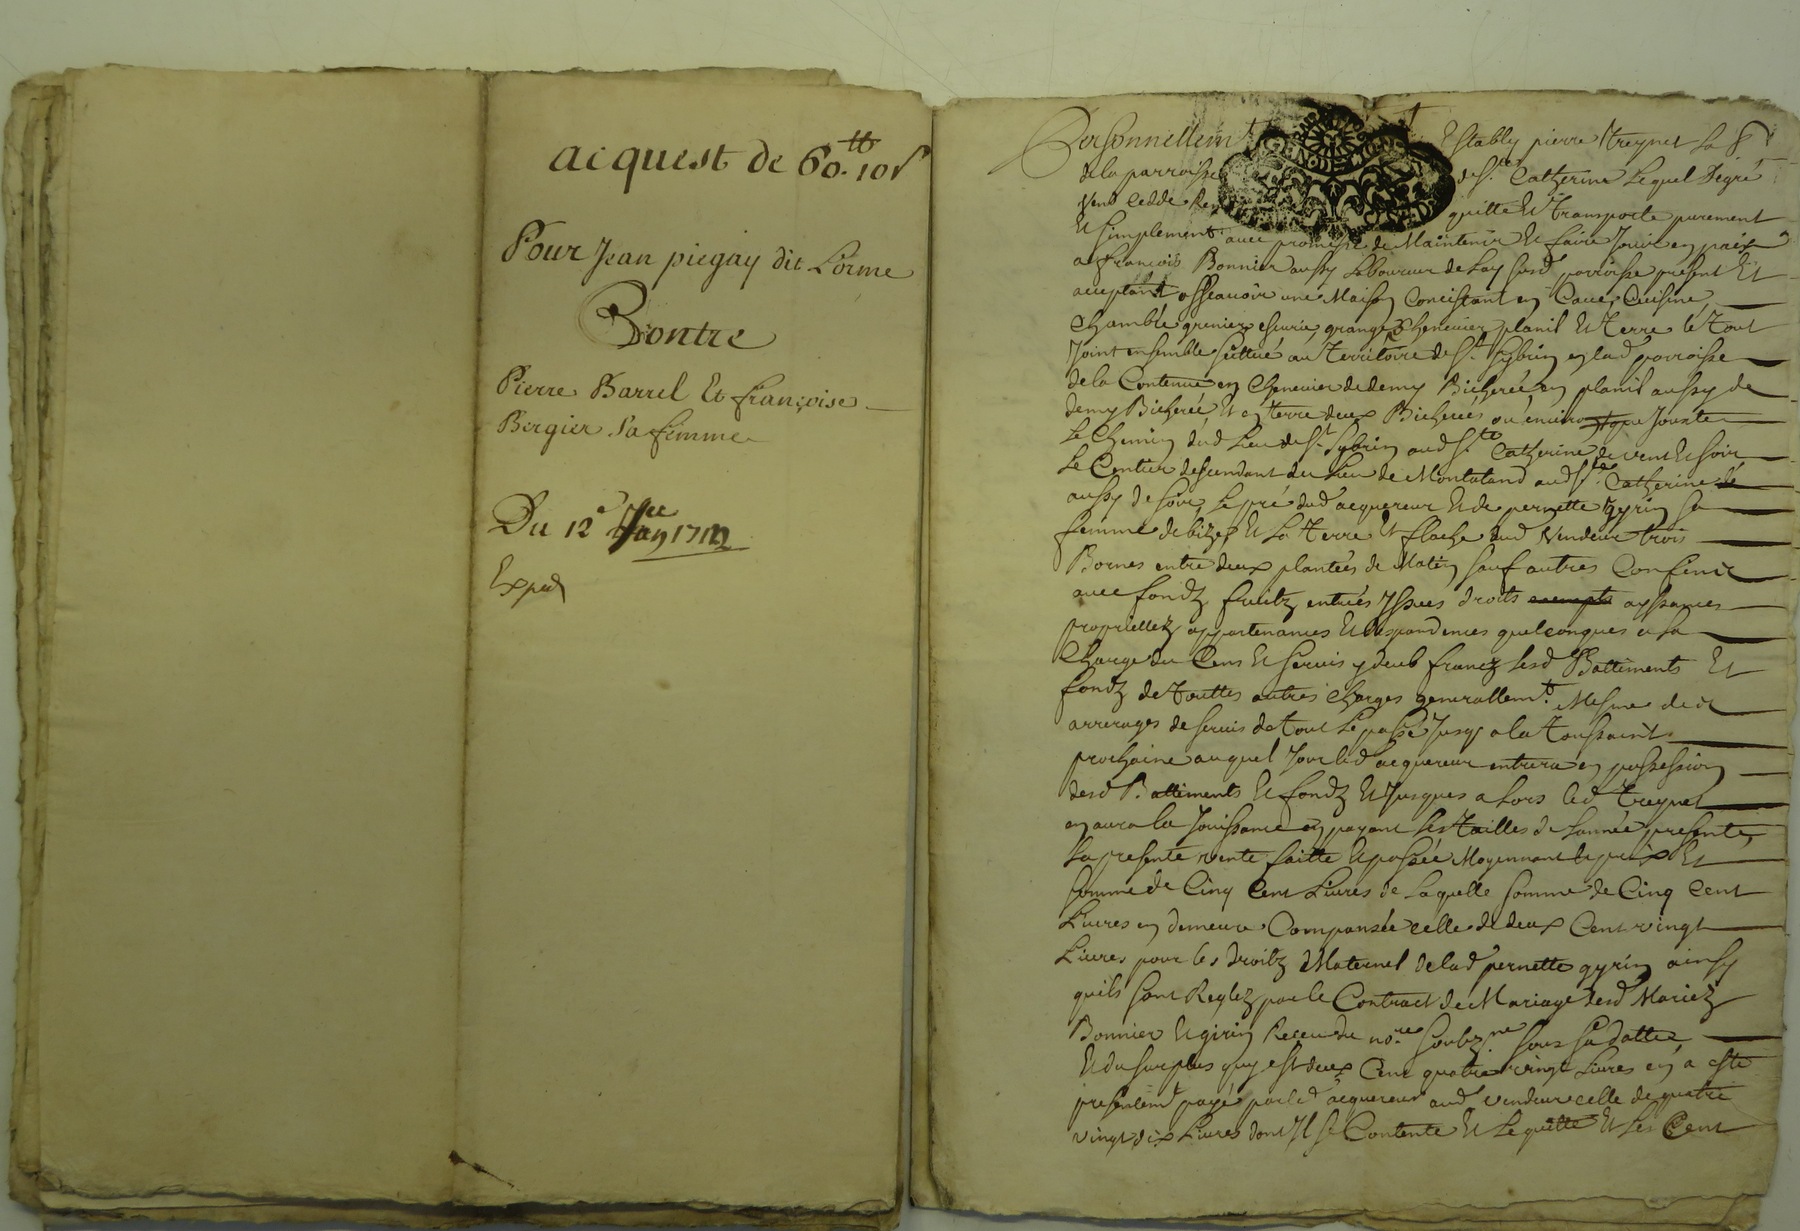 acquest de 60.tt 10s
Pour Jean piegay dit Lorme
Contre
Pierre Barrel Et françoise
Bergier Sa femme
Du 12e 1712
Exped
Personnellemt Estably pierre treynet La
de la parroisse de Ste Catherine Lequel de gré
vend cedde quitte Et transporte purement
Et simplement avec promesse de Maintenir Et faire Jouir en paix
a françois Bonnier aussy Laboureur de Lay susd parroisse présent Et
acceptant assçavoir une Maison Concistant en Cave, Cuisine
Chambre grenier escurie, grange Chenevier planil Et terre le tout
Joint ensemble scittué au territoire de St en lad parroisse
de la Contenue en Chenevier de demy Bicherée en planil aussy de
demy Bicherée Et en terre deux Bicherées ou environ que Jouxte
Le Chemin dud Lieu de St aud Ste Catherine de vent Et soir
Le Centier descendant du Lieu de aud Ste Catherine
aussy de soir, Le pré dud acquereur Et de pernette gyrin sa
femme de bize, Et La terre Et flache aud vendeur trois
Bornes entre deux plantées de Matin sauf autres Confins
avec fondz fruitz entrées Issues droits ayssances
proprietez appartenances Et dependences quelconques a la
Charge du Cens Et servis y deub francz lesd Battiments Et
fondz de touttes autres charges generallemt. Mesme des
arrerages de servis de tout Le passé Jusq a la toussaint
prochaine auquel Jour led acquereur entrera en possession
desd Battiments Et fondz Et Jusques a Lors led treynet
en aura la Jouissance en payant les tailles de Lannée presente,
La presente vente faitte Et passée Moyennant le prix Et
somme de Cinq Cent Livres de Laquelle somme de Cinq Cent
Livres en demeure Compansée celle de deux Cent vingt
Livres pour les droitz Maternel de lad pernette gyrin ainsy
quils sont Reglez par le Contract de Mariage desd Mariez
Bonnier Et girin Receu du nore soubzne sous sa datte
Et du surplus quy est deux Cent quatre vingt Livres en a esté
presentemt payé par led acquereur aud vendeur celle de quatre
vingt dix Livres dont Il se Contente Et Le quitte Et Les Cent